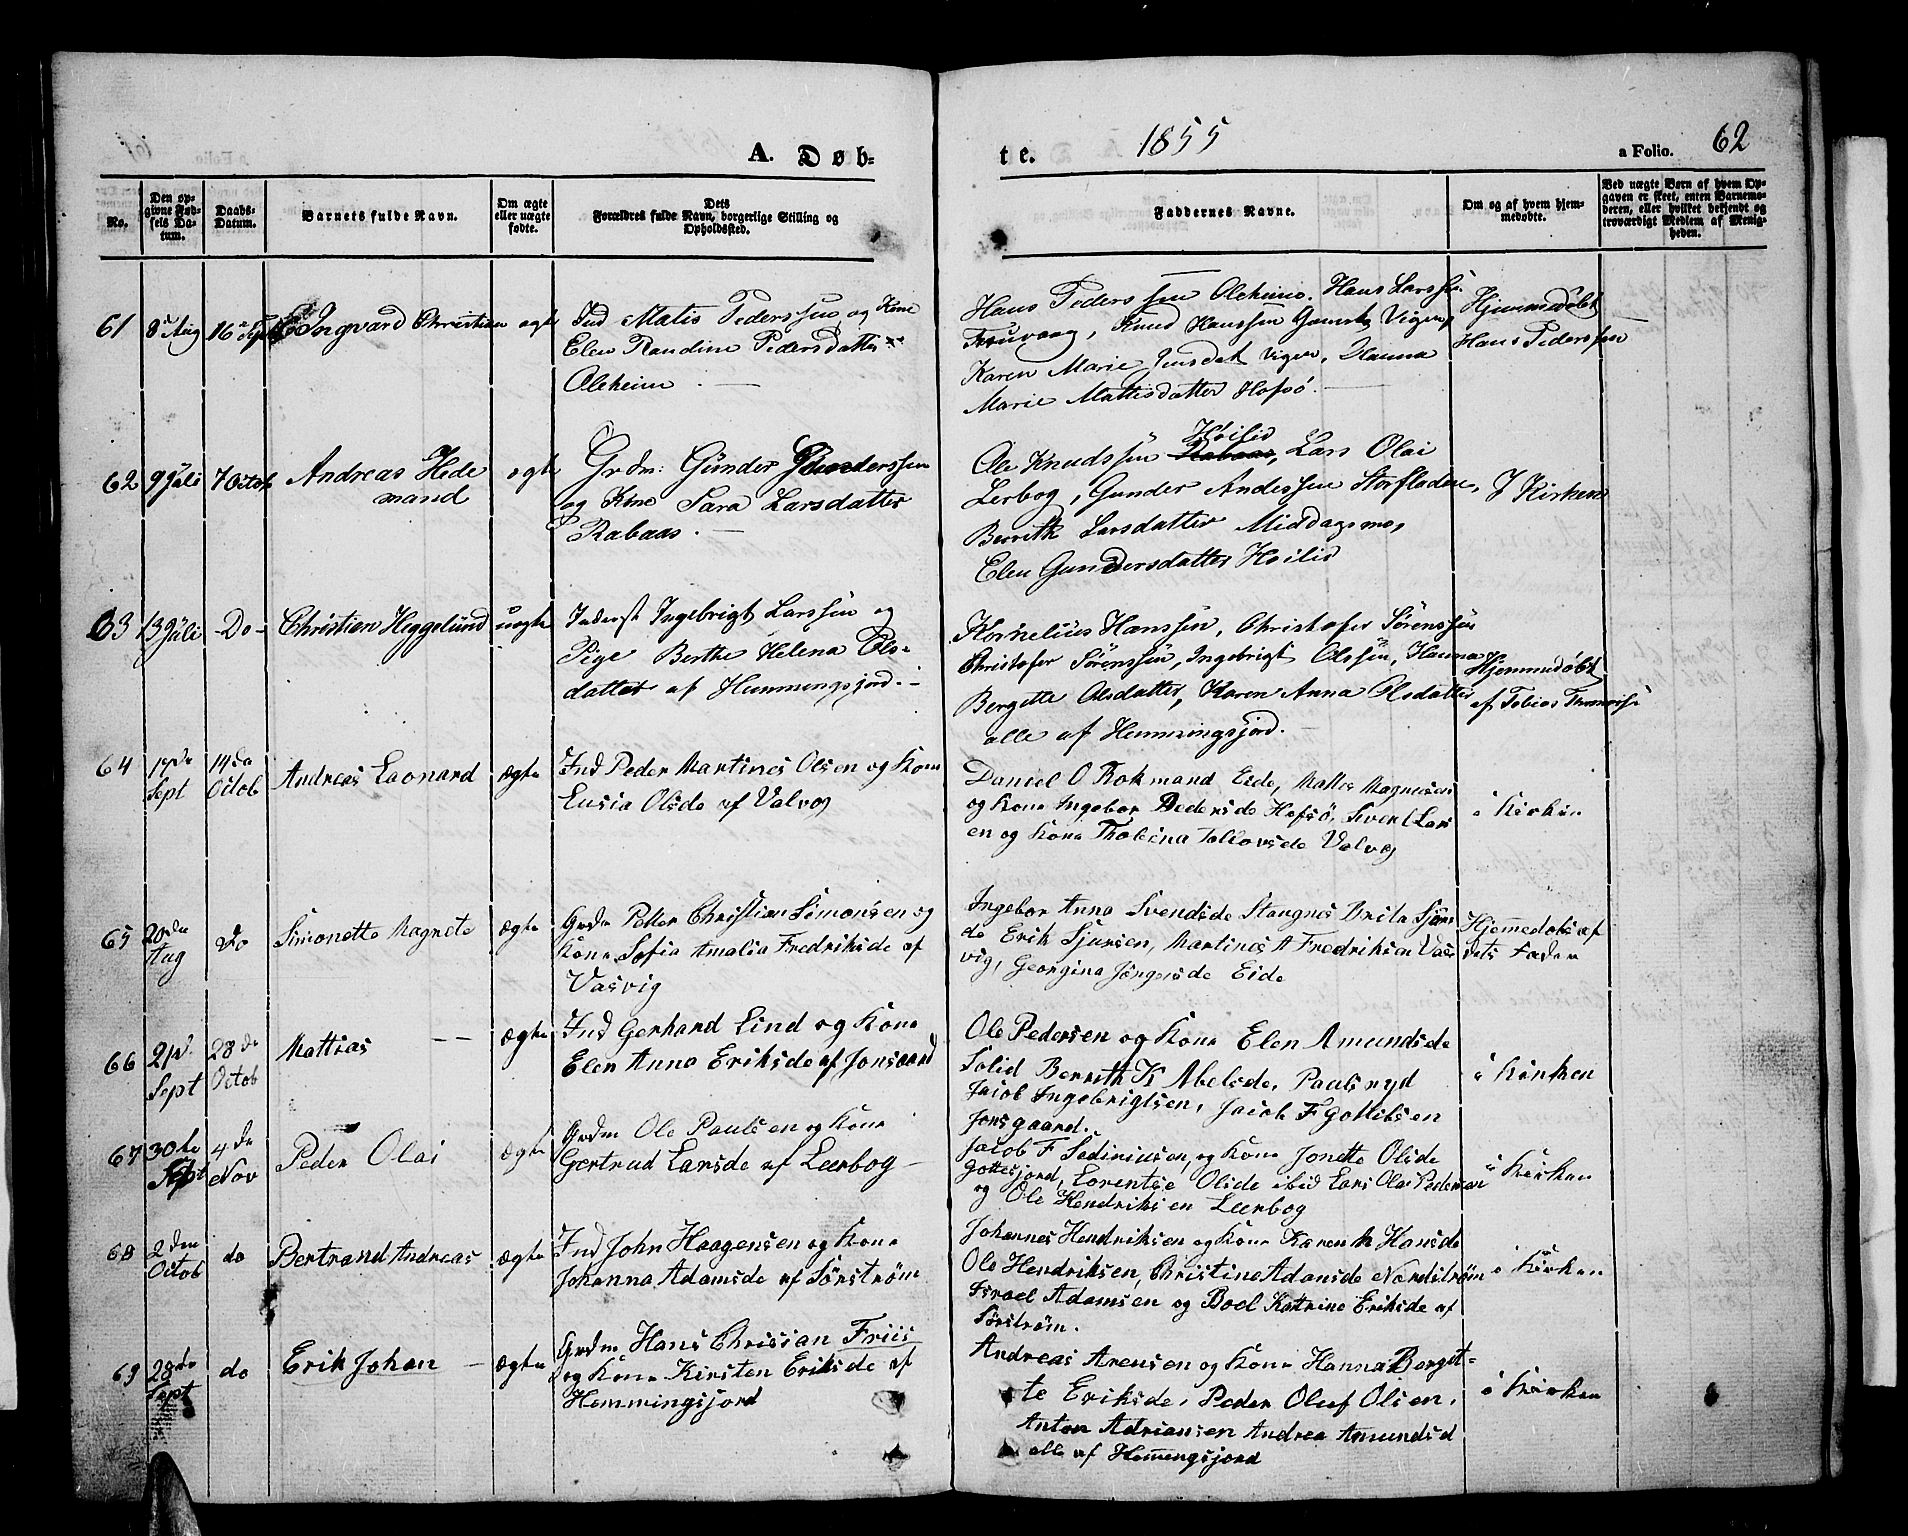 A. Døb-
te. 1855
a Folio. 62
No.
Den op-
givne Fød-
sels Da-
tum.
Daabs-
Datum.
Barnets fulde Navn.
Om ægte
eller uægte
fødte.
Dets
Forældres fulde Navn, borgerlige Stilling og
Opholdssted.
Faddernes Navne.
Om og af hvem hjem-
medøbte.
Ved uægte Barn af hvem Op-
gaven er skeet, enten Barnemo-
deren, eller hvilket bekjendt og
troværdigt Medlem af Menig-
heden.
61 8 Aug 16 Ingvard Christian ægte
Ind Matis Pederssen og Kone
Elen Randine Pedersdatter
Oleheim
Hans Pederssen Oleheim. Hans Larssen
Knud Hanssen Vigen,
Karen Marie Jensdat Vigen, Hanna
Marie Mattisdatter Hofsø.
Hjemmedøbt
Hans Pederssen
62 9 Juli 7 Octob Andreas Hede
mand
ægte
Grdm: Gunder Gunderssen
og Kone Sara Larsdatter
Rabaas.
Høilid
Ole Knudssen Rabaas, Lars Olai
Lerbog, Gunder Anderssen Storfladen,
Berrith Larsdatter Middagsmo,
Elen Gundersdatter Høilid
I Kirken
63 13 Juli Do Christien Heggelund uægte
Inderst Ingebrigt Larssen og
Pige Berthe Helena Ols-
datter af Hemmingsjord.
Kornelius Hanssen, Christofer Sørenssen
Christofer Sørenssen, Ingebrigt Olssen, Hanna
Bergitte Olsdatter, Karen Anna Olsdatter
alle af Hemmingsjord.
Hjemmedøbt
af Tobias
64 17de
Sept
14da
Octob
Andreas Laonard ægte
Ind Peder Martines Olsen og Kone
Lusia Olsde af Valvog
Daniel O Rokmand Eide, Mattes Magnusen
og Kone Ingebor Pedersde Hofsø, Sivert Lars
en og Kone Thobina Tollovsde Valvog
i Kirken
65 20de
Aug
do Simonette Magnete ægte
Grdm Petter Christian Simonsen og
Kone Sofia Amalia Fredriksde af
Vasvig
Ingebor Anna Svendsde Stangnes Brita Sjurs
de Erik Sjursen, Martines A Fredriksen Vas
vig, Georgina Jørgersde Eide
Hjemmedøbt af
dets Fader
66 21de
Sept
28de
Octob
Mattias ægte
Ind Gerhard Lind og Kone
Elen Anna Eriksde af Jonsgaard
Ole Pedersen og Kone Elen Amundsde
Solid Berreth K Abelsde, Paulsryd
Jacob Ingebrigtsen, Jacob F Gottlibsen
Jonsgaard.
i Kirken
67 30te
Sept
4de
Nov
Peder Olai ægte
Grdm Ole Paulsen og Kone
Gertrud Larsde af Leerbog
Jacob F Sediniusen, og Kone Jonette Olsde
Gottesjord, Lorentse Olsde ibid Lars Olai Pedersen
og Ole Hendriksen Leerbog
i Kirken
68 2den
Octob
do Bertrand Andreas ægte
Ind John Haagensen og Kone
Johanna Adamsde af Sørstrøm
Johannes Hendriksen og Kone Karen M Hansde
Ole Hendriksen, Christine Adamsde Nordstrøm
Israel Adamsen og Boel Kattrine Eriksde af
Sørstrøm.
i Kirken
69 28de
Sept
do Erik Johan ægte
Grdm Hans Chrisian Friis
og Kone Kirsten Eriksde af
Hemmingsjord
Andreas Arensen og Kone Hanna Bergit-
te Eriksde, Peder Oluf Olsen,
Anton Adriansen Andrea Amundsd
alle af Hemengsjord
i Kirken